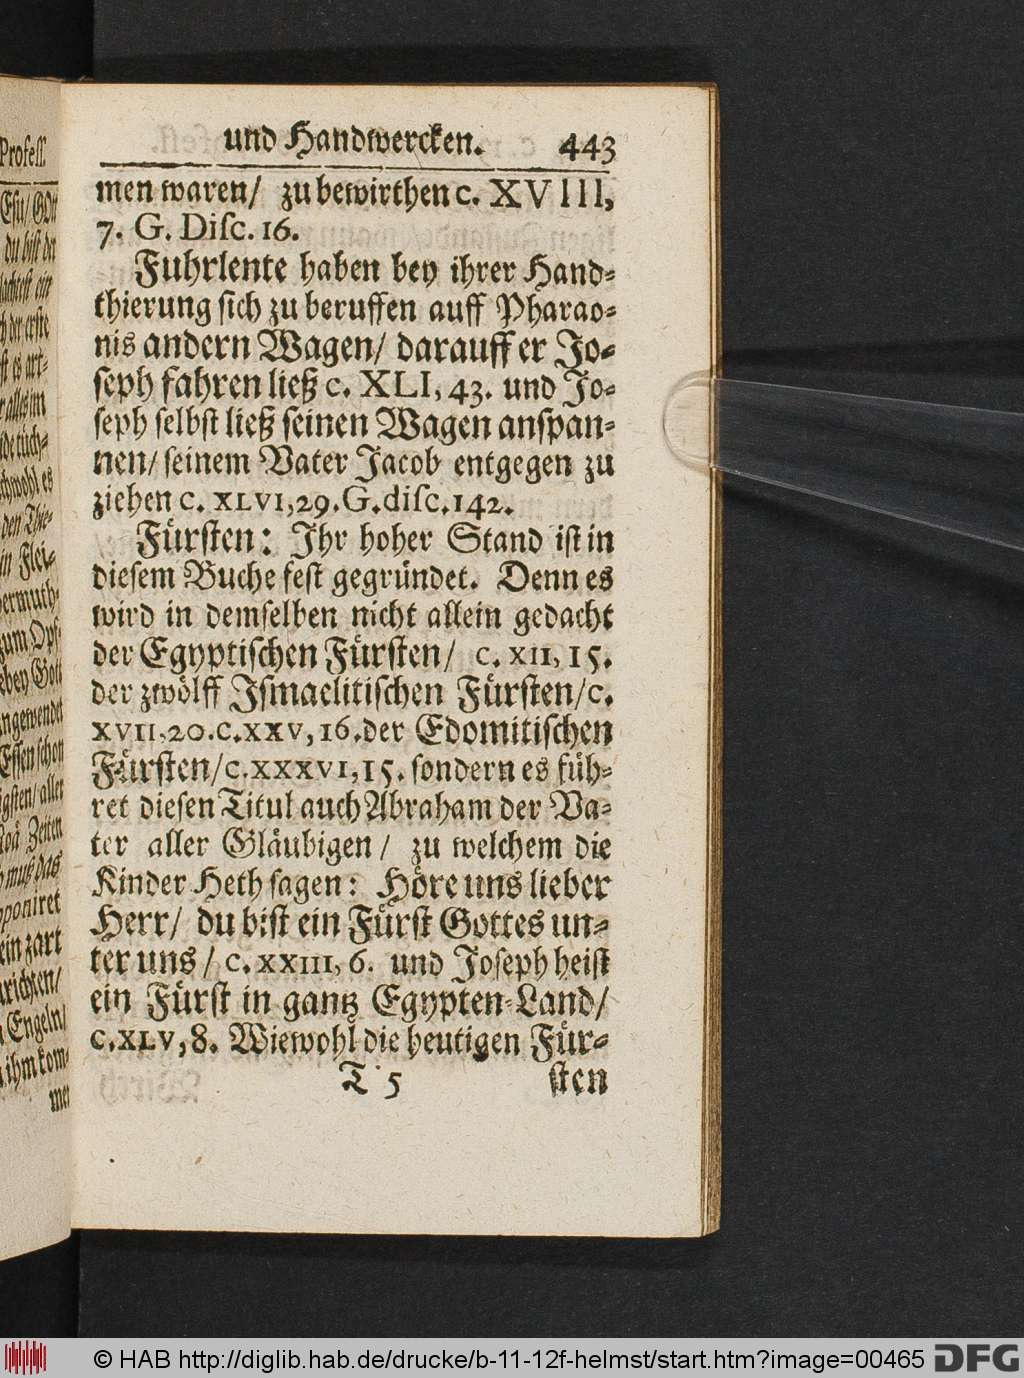 und Handwercken. 443
men waren/ zu bewirthen c. XVIII,
7. G. Disc. 16.
Fuhrlente haben bey ihrer Hand-
thierung sich zu beruffen auff Pharao-
nis andern Wagen/ darauff er Jo-
seph fahren ließ c. XLI, 43. und Jo-
seph selbst ließ seinen Wagen anspan-
nen/ seinem Vater Jacob entgegen zu
ziehen c. XLVI, 29. G. disc. 142.
Fürsten: Ihr hoher Stand ist in
diesem Buche fest gegründet. Denn es
wird in demselben nicht allein gedacht
der Egyptischen Fürsten/ c. XII, 15.
der zwölff Ismaelitischen Fürsten/ c.
XVII, 20. c. XXV, 16. der Edomitischen
Fürsten/ c. XXXVI, 15. sondern es füh-
ret diesen Titul auch Abraham der Va-
ter aller Gläubigen/ zu welchem die
Kinder Heth sagen: Höre uns lieber
Herr/ du bist ein Fürst Gottes un-
ter uns/ c. XXIII, 6. und Joseph heist
ein Fürst in gantz Egypten-Land/
c. XLV, 8. Wiewohl die heutigen Für-
T 5 sten
Profess.
Esu/ GOtt
du bist der
ein
der erste
ist es art-
alles im
es
den Thie-
in Flei-
zum Opf-
Gott
Essen schon
aller
Zeiten
muß das
ein zart
Engeln/
ihm kom-
men
© HAB http://diglib.hab.de/drucke/b-11-12f-helmst/start.htm?image=00465
DFG